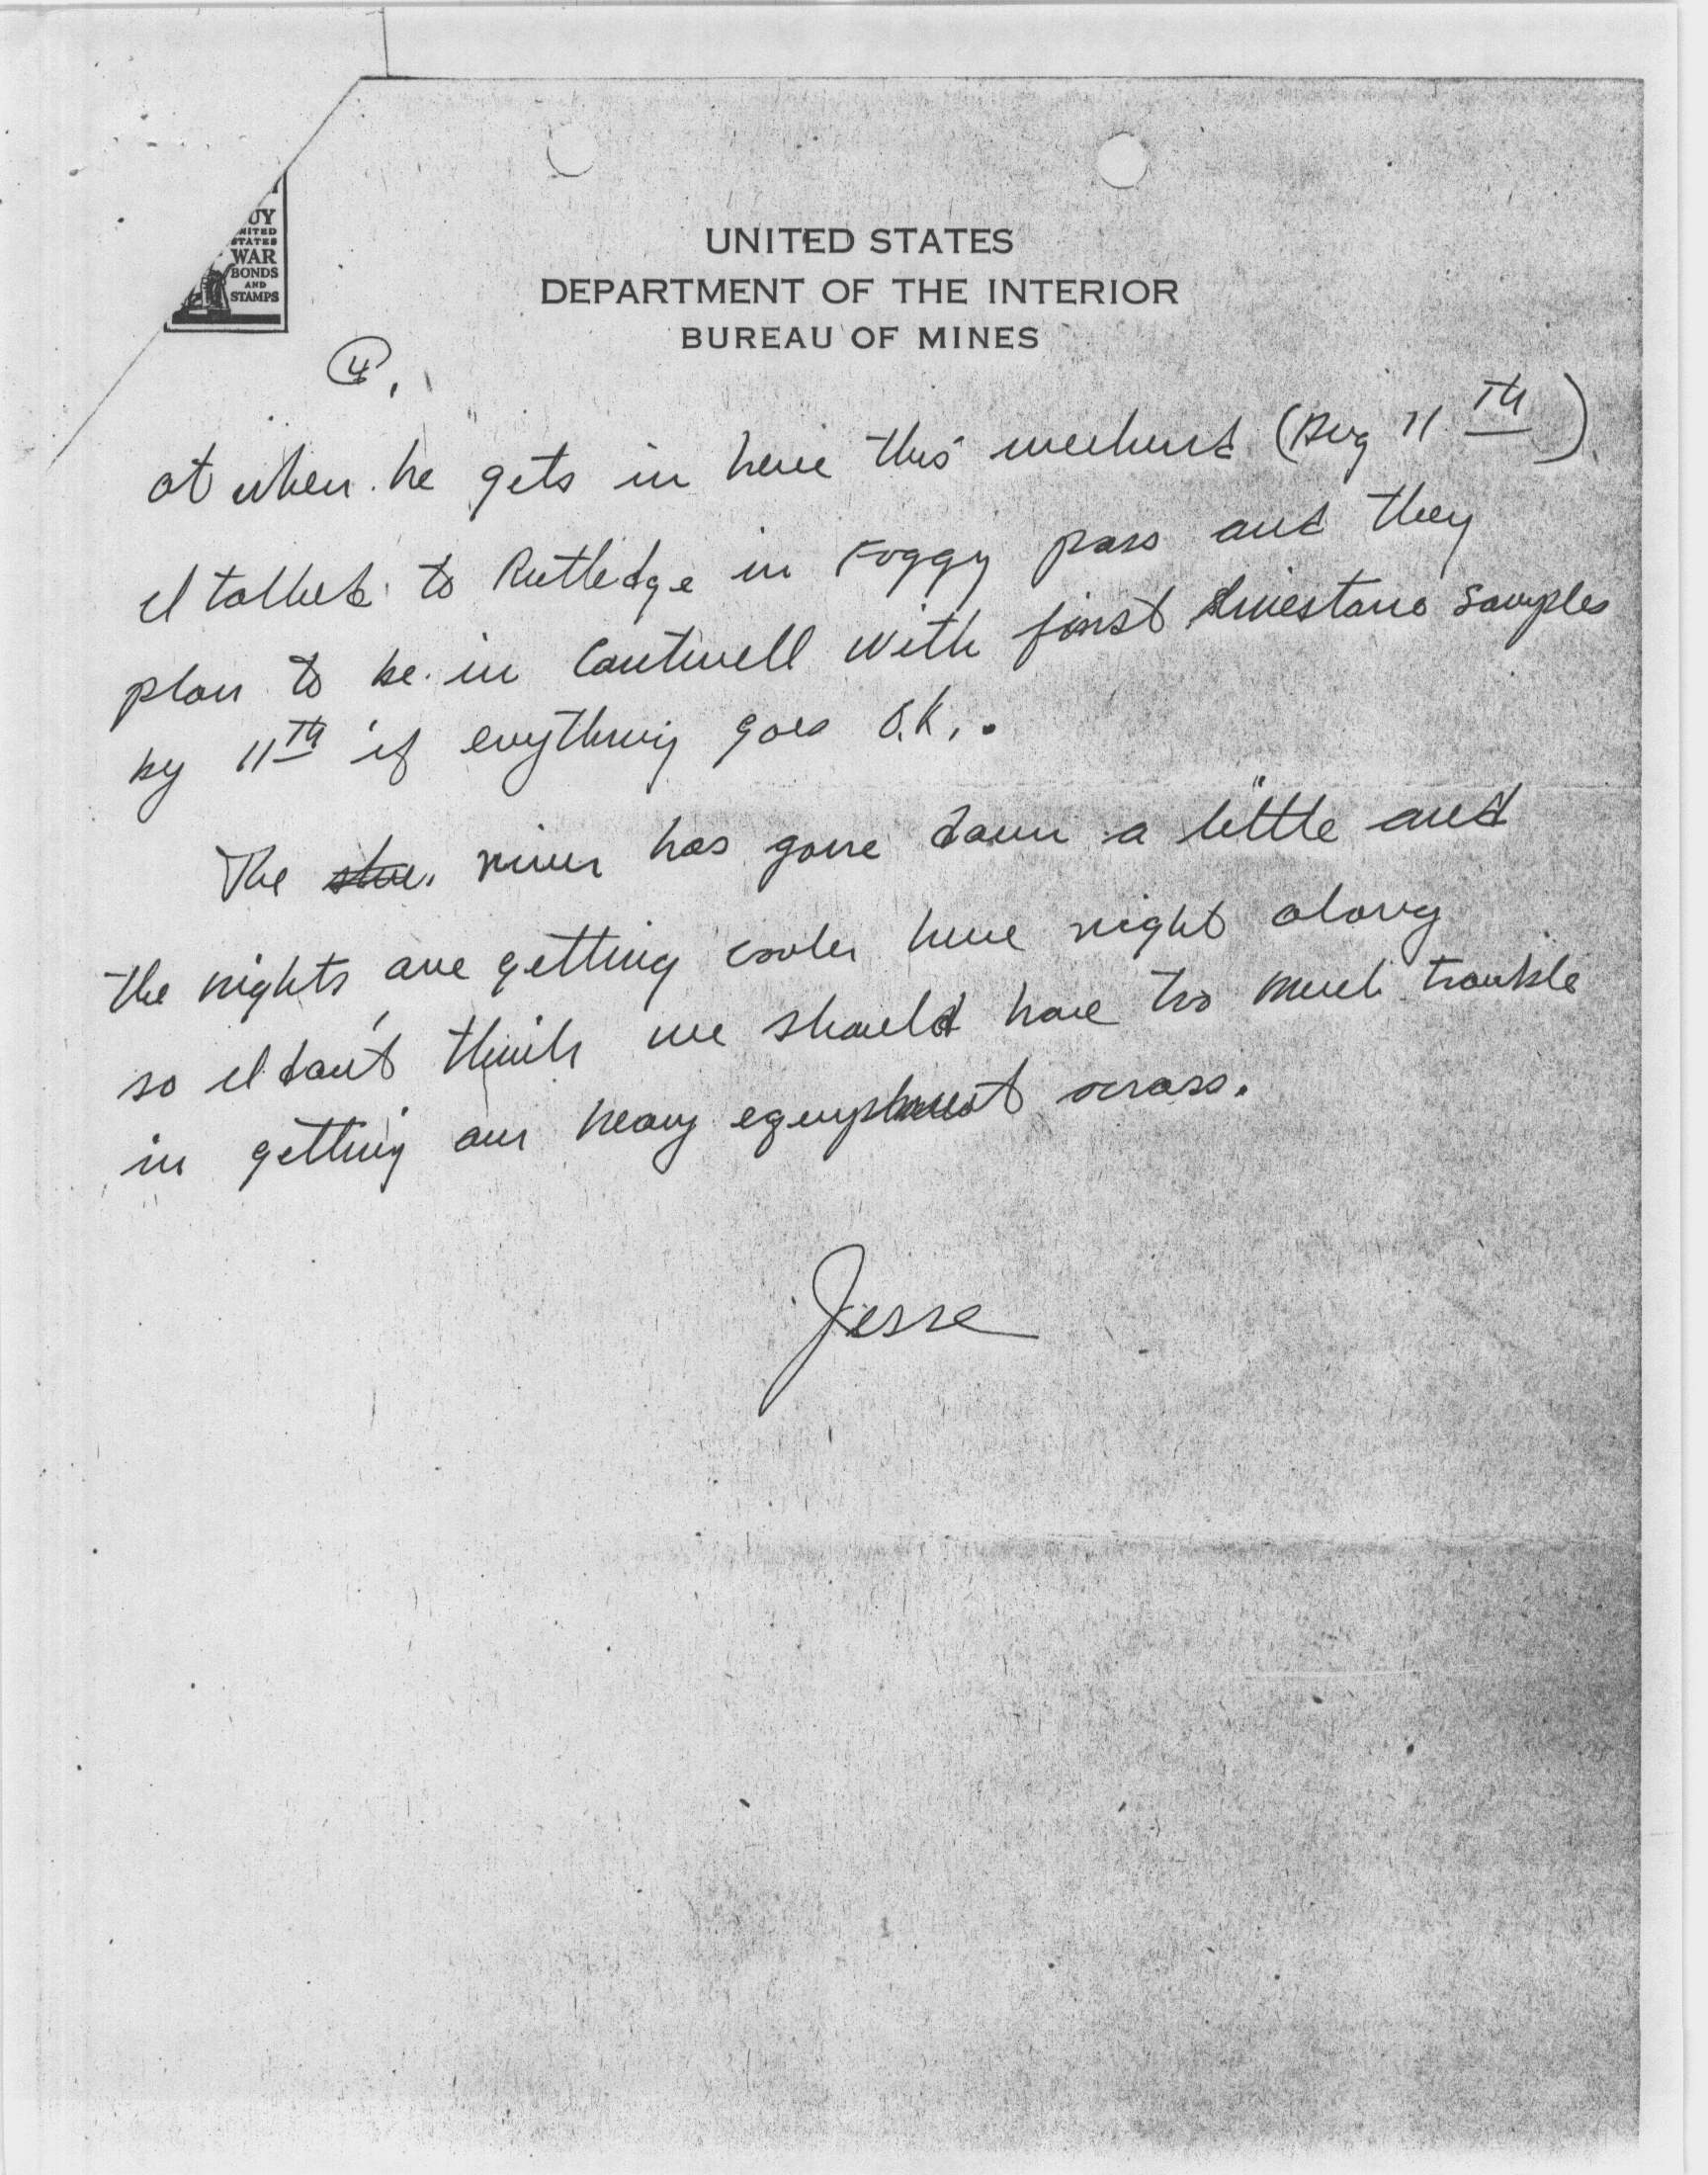 UY
NITED
STATES
WAR
BONDS
AND
STAMPS
UNITED STATES
DEPARTMENT OF THE INTERIOR
BUREAU OF MINES
4.
at when he gets in here this weekend (Aug 11th).
I talked to Rutledge in Foggy pass and they
plan to be in Cantwell with first limestone samples
by 11th if evything goes O.K..
The river has gone down a little and
the nights are getting cooler here right along
so I don't think we should have too much trouble
in getting our heavy equipment across.
Jesse